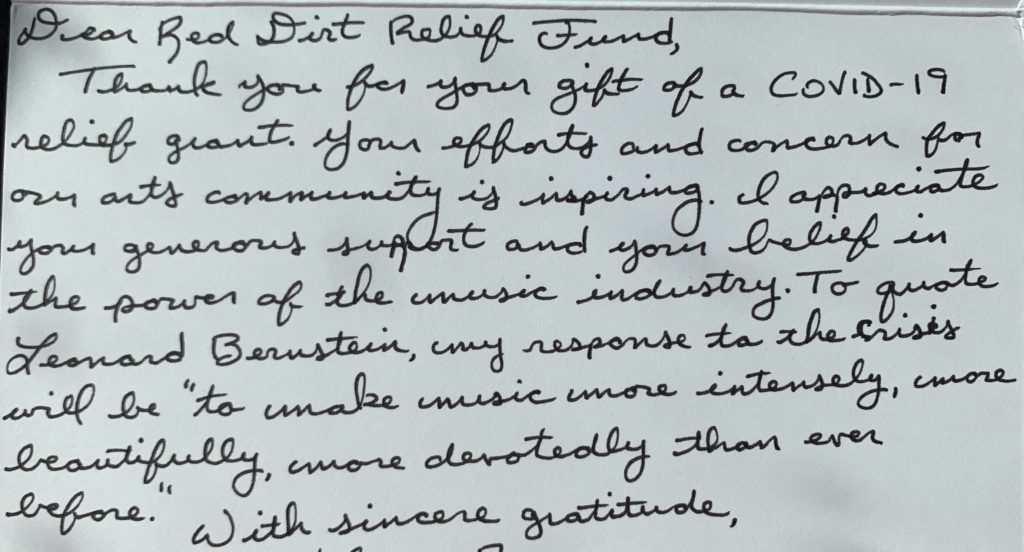 Dear Red Dirt Relief Fund,
Thank you for your gift of a COVID-19
relief grant. Your efforts and concern for
our arts community is inspiring. I appreciate
your generous support and your belief in
the power of the music industry. To quote
Leonard Bernstein, my response to the crisis
will be "to make music more intensely, more
beautifully, more devotedly than ever
before."
With sincere gratitude,